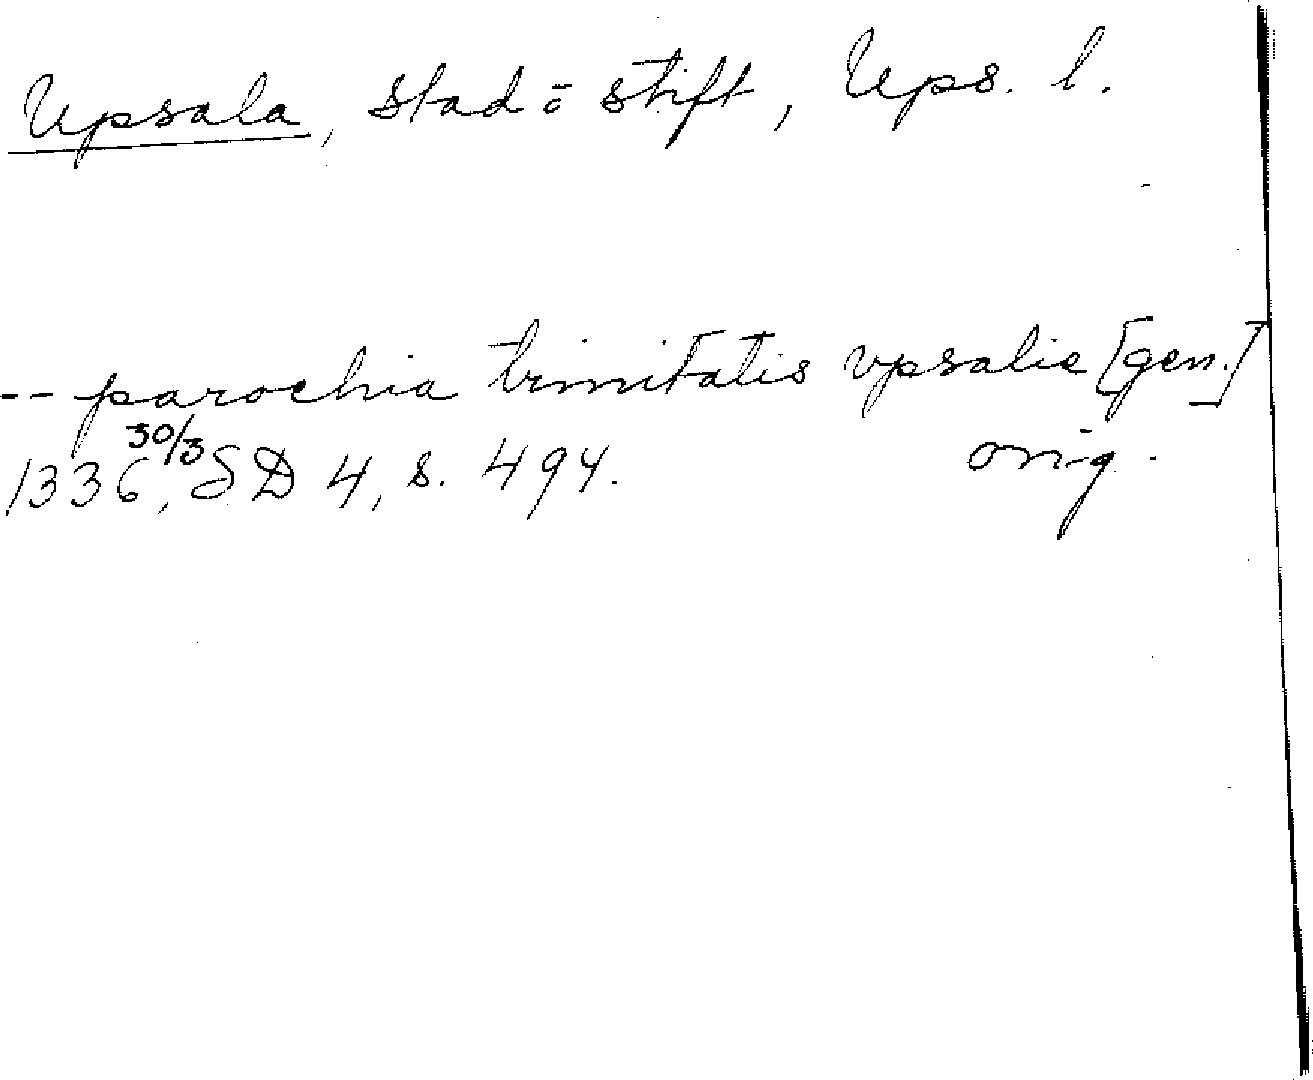 Upsala, stad o stift, Ups. l.
-- parochia trinitatis vpsalie [gen.]
1336, 30/3 SD 4, s. 494. orig.